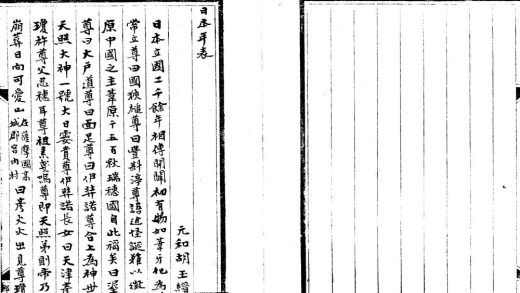 日本年表
元和胡玉縉
日本立國二千餘年相傳開闢初有物如葦牙化為
常立尊曰國狹槌尊曰豐斟渟尊語近怪誕難以徵
原中國之主葦原千五百秋瑞穗國自此福矣曰埿
尊曰大戶道尊曰面足尊曰伊弉諾尊合上為神世
天照大神一號大日孁貴尊伊弉諾長女曰天津彥
瓊杵尊父忍穗耳尊祖素戔嗚尊即天照弟則帝乃
崩葬日向可愛山在薩摩國高城郡宮內村曰彥火火出見尊瓊